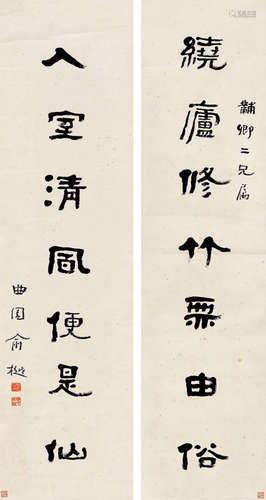 黼卿二兄属
繞廬修竹無由俗
入室清風便是仙
曲園俞樾